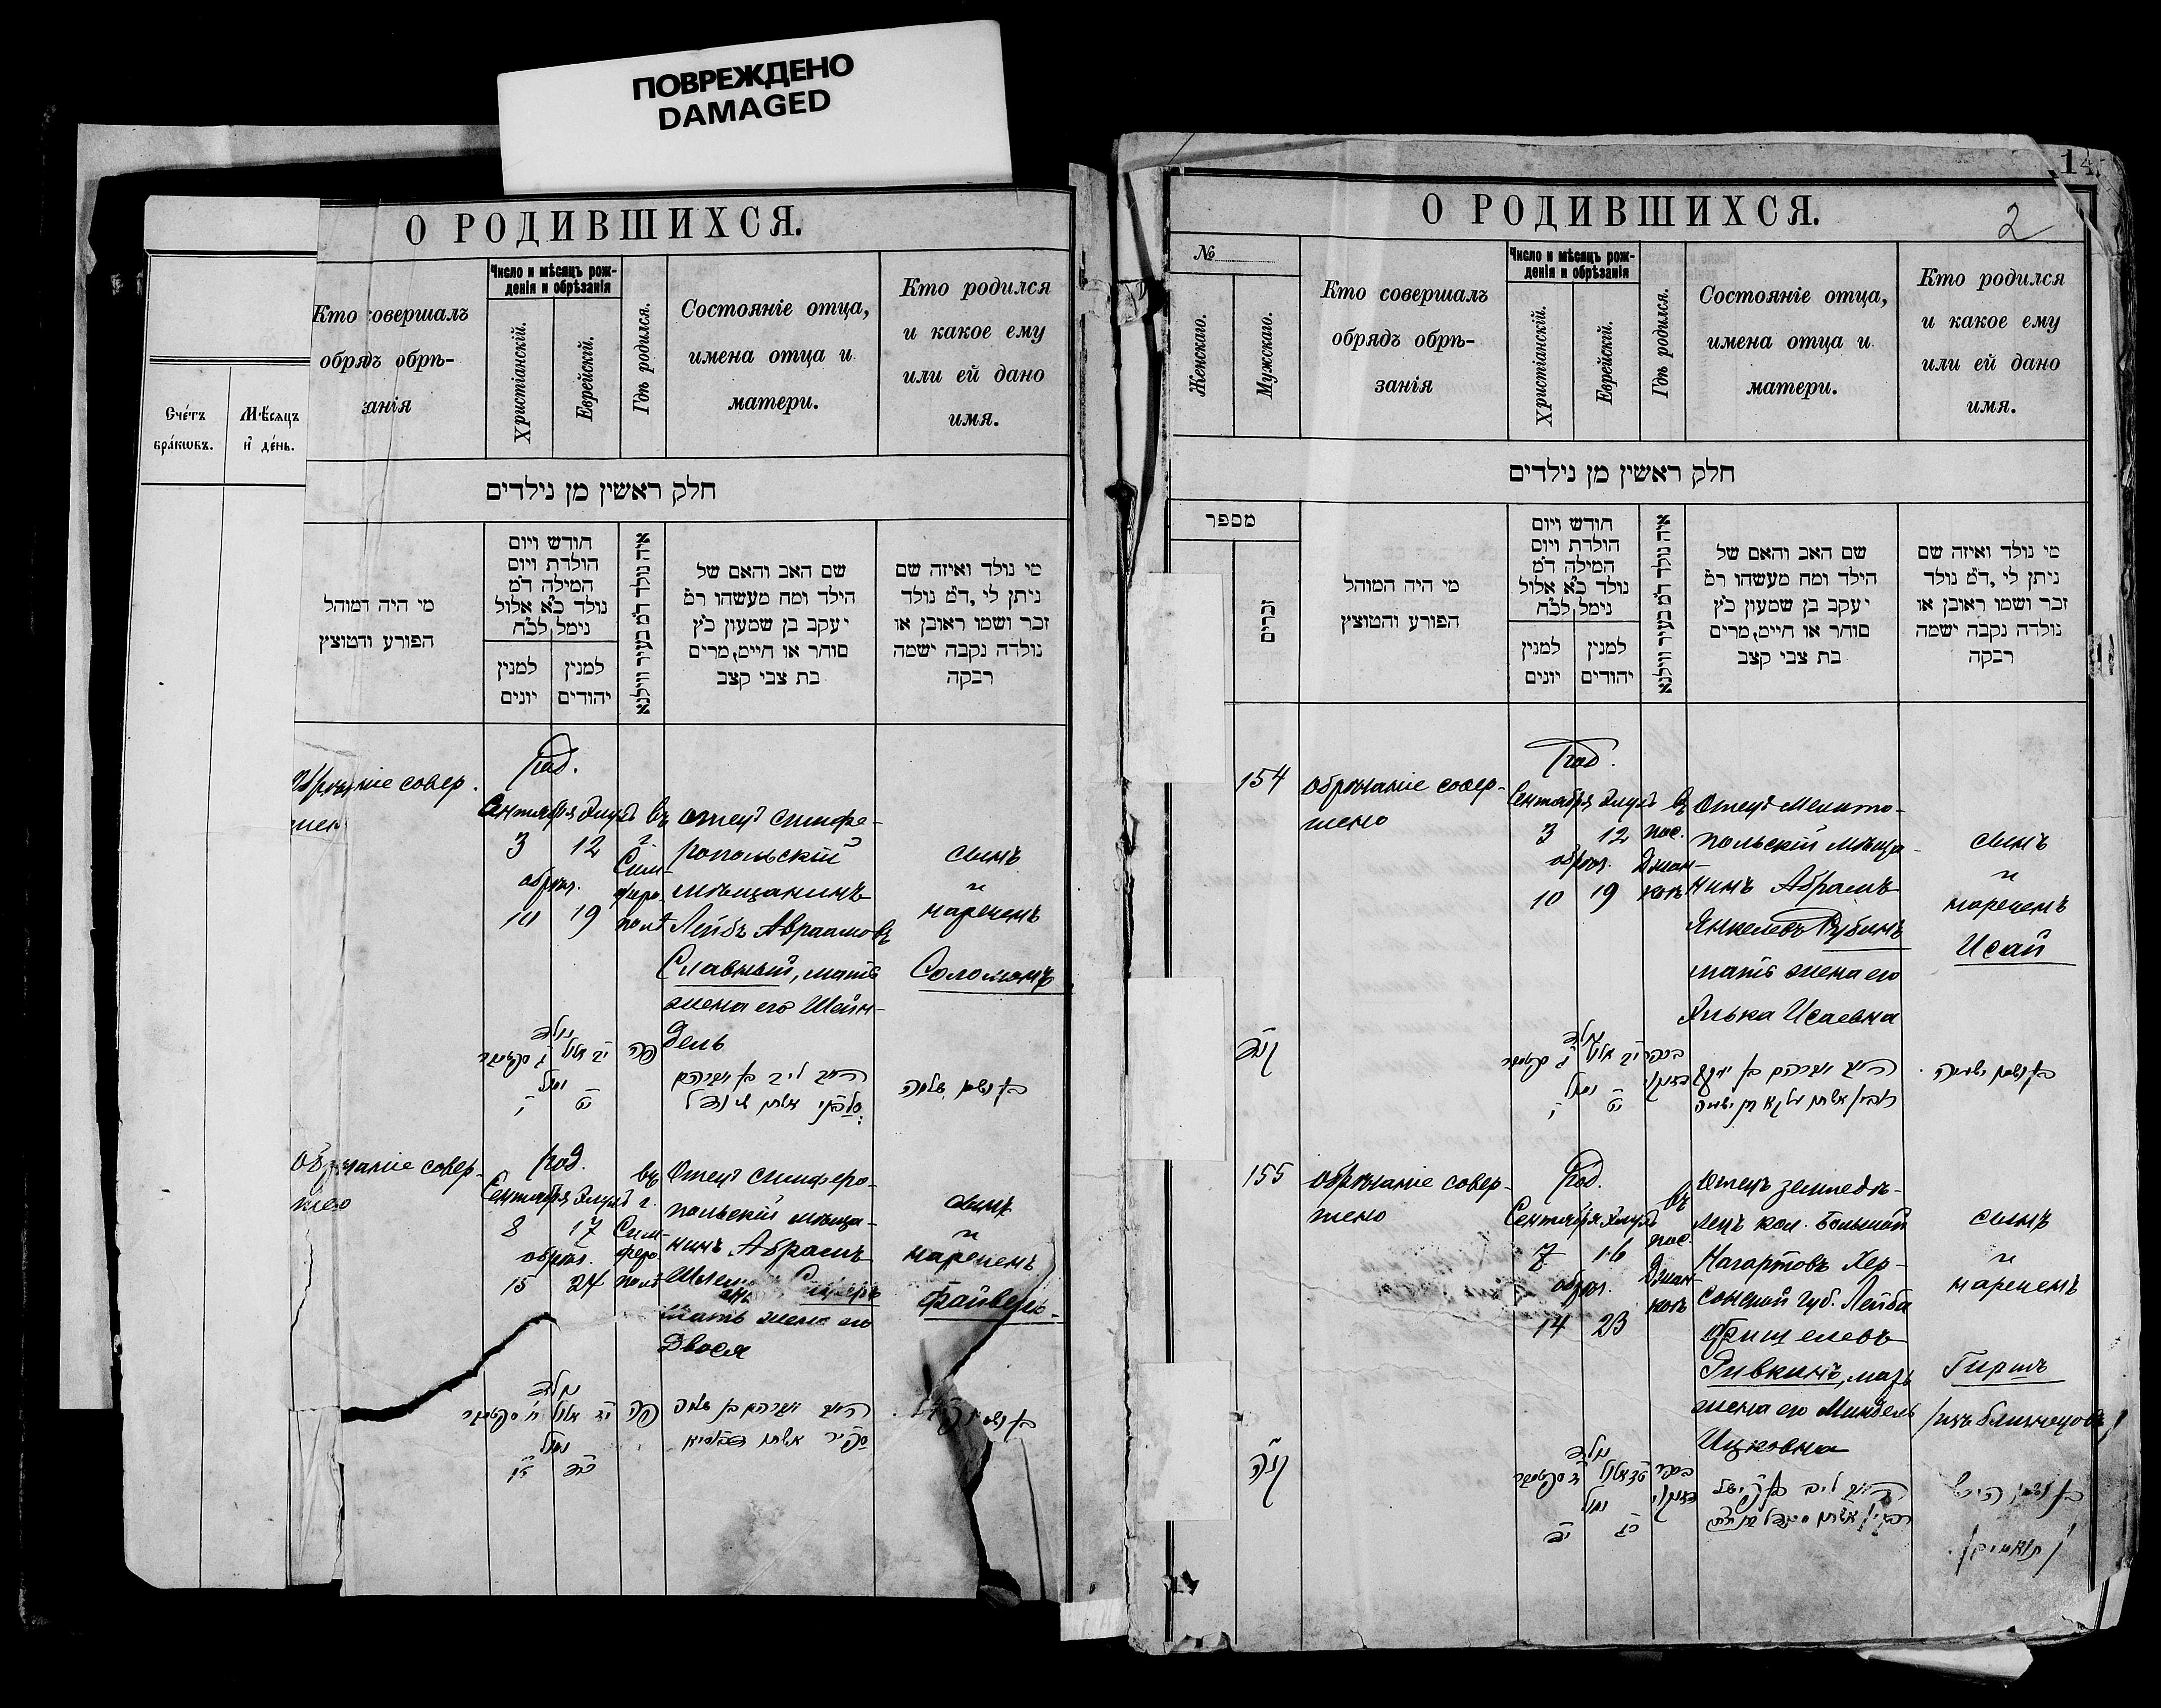 ПОВРЕЖДЕНО
DAMAGED
О РОДИВШИХСЯ.
Счéтъ
брáкωвъ.
Мѣсяцъ
и҆ дéнь.
Кто совершалъ
обрядъ обрѣ-
занія
Число и мѣсяцъ рож-
денія и обрѣзанія
Христіанскій.
Еврейскій.
Гдѣ родился.
Состояніе отца,
имена отца и
матери.
Кто родился
и какое ему
или ей дано
имя.
חלק ראשין מן נילדים
מי היה המוהל
הפורע והמוצץ
חודש ויום
הולדת ויום
המילה ד״מ
נולד כ״א אלול
נימל לכ״ח
למנין
יונים
למנין
יהודים
איה נולד ד״מ בעיר ווילנא
שם האב והאם של
הילד ומה מעשהו ד״מ
יעקב בן שמעון כ״ץ
סוחר או חייט, מרים
בת צבי קצב
מי נולד ואיזה שם
ניתן לו, ד״מ נולד
זכר ושמו ראובן או
נולדה נקבה ישמה
רבקה
обрѣзаніе совер-
шен
Род.
Сентября Элулъ
3 12
обрѣз.
10 19
въ
г.
Сим-
феро-
полѣ
отецъ симфе-
ропольскій
мѣщанинъ
Лейбъ Авраамовъ
Славный, мать
жена его Шейн-
дель
сынъ
и
нареченъ
Соломонъ
נולד
י״ב אלול ג׳ סקטמבר
נמול
י״ט י׳
פה
ה״ה ליב בן אברהם
בן ושמו שלמה
обрѣзаніе совер-
шено
Род.
Сентября Элулъ
8 17
обрѣз.
15 24
въ
г.
Сим-
феро-
полѣ
Отецъ симферо-
польскій мѣща-
нинъ Абрамъ
мать жена его
Двося
сынъ
и
нареченъ
Файвель
נולד
נמול
כ״ד
פה
ה״ה אברהם בן שלמה
בן ושמו
14
2
О РОДИВШИХСЯ.
№
Женскаго.
Мужскаго.
Кто совершалъ
обрядъ обрѣ-
занія
Число и мѣсяцъ рож-
денія и обрѣзанія
Христіанскій.
Еврейскій.
Гдѣ родился.
Состояніе отца,
имена отца и
матери.
Кто родился
и какое ему
или ей дано
имя.
חלק ראשין מן נילדים
מספר
זכרים
מי היה המוהל
הפורע והמוצץ
חודש ויום
הולדת ויום
המילה ד״מ
נולד כ״א אלול
נימל לכ״ח
למנין
יונים
למנין
יהודים
איה נולד ד״מ בעיר ווילנא
שם האב והאם של
הילד ומה מעשהו ד״מ
יעקב בן שמעון כ״ץ
סוחר או חייט, מרים
בת צבי קצב
מי נולד ואיזה שם
ניתן לו, ד״מ נולד
זכר ושמו ראובן או
נולדה נקבה ישמה
רבקה
154
обрѣзаніе совер-
шено
Род.
Сентября Элулъ
3 12
обрѣз.
10 19
въ
пос.
Джан-
коѣ
Отецъ Мелито-
польскій мѣща-
нинъ Абрамъ
Янкелевъ Рубинъ
мать жена его
Хилька Исаевна
сынъ
и
нареченъ
Исай
קנ״ד
נולד
י״ב אלול ג׳ סקטמבר
נמול
י״ט י׳
ה״ה אברהם בן יעקב
בן ושמו ישעיה
155
обрѣзаніе совер-
шено
Род.
Сентября Элулъ
7 16
обрѣз.
14 23
въ
пос.
Джан-
коѣ
Отецъ земледѣ-
лецъ кол. Большой
Нагартовъ Хер-
сонской губ. Лейба
Ривкинъ, мать
жена его Миндель
Ицковна
сынъ
и
нареченъ
Гиршъ
/изъ близнецовъ/
קנ״ה
נולד
נמול
כ״ג י״ד
ה״ה ליב
בן ושמו הירש
/תאומים/